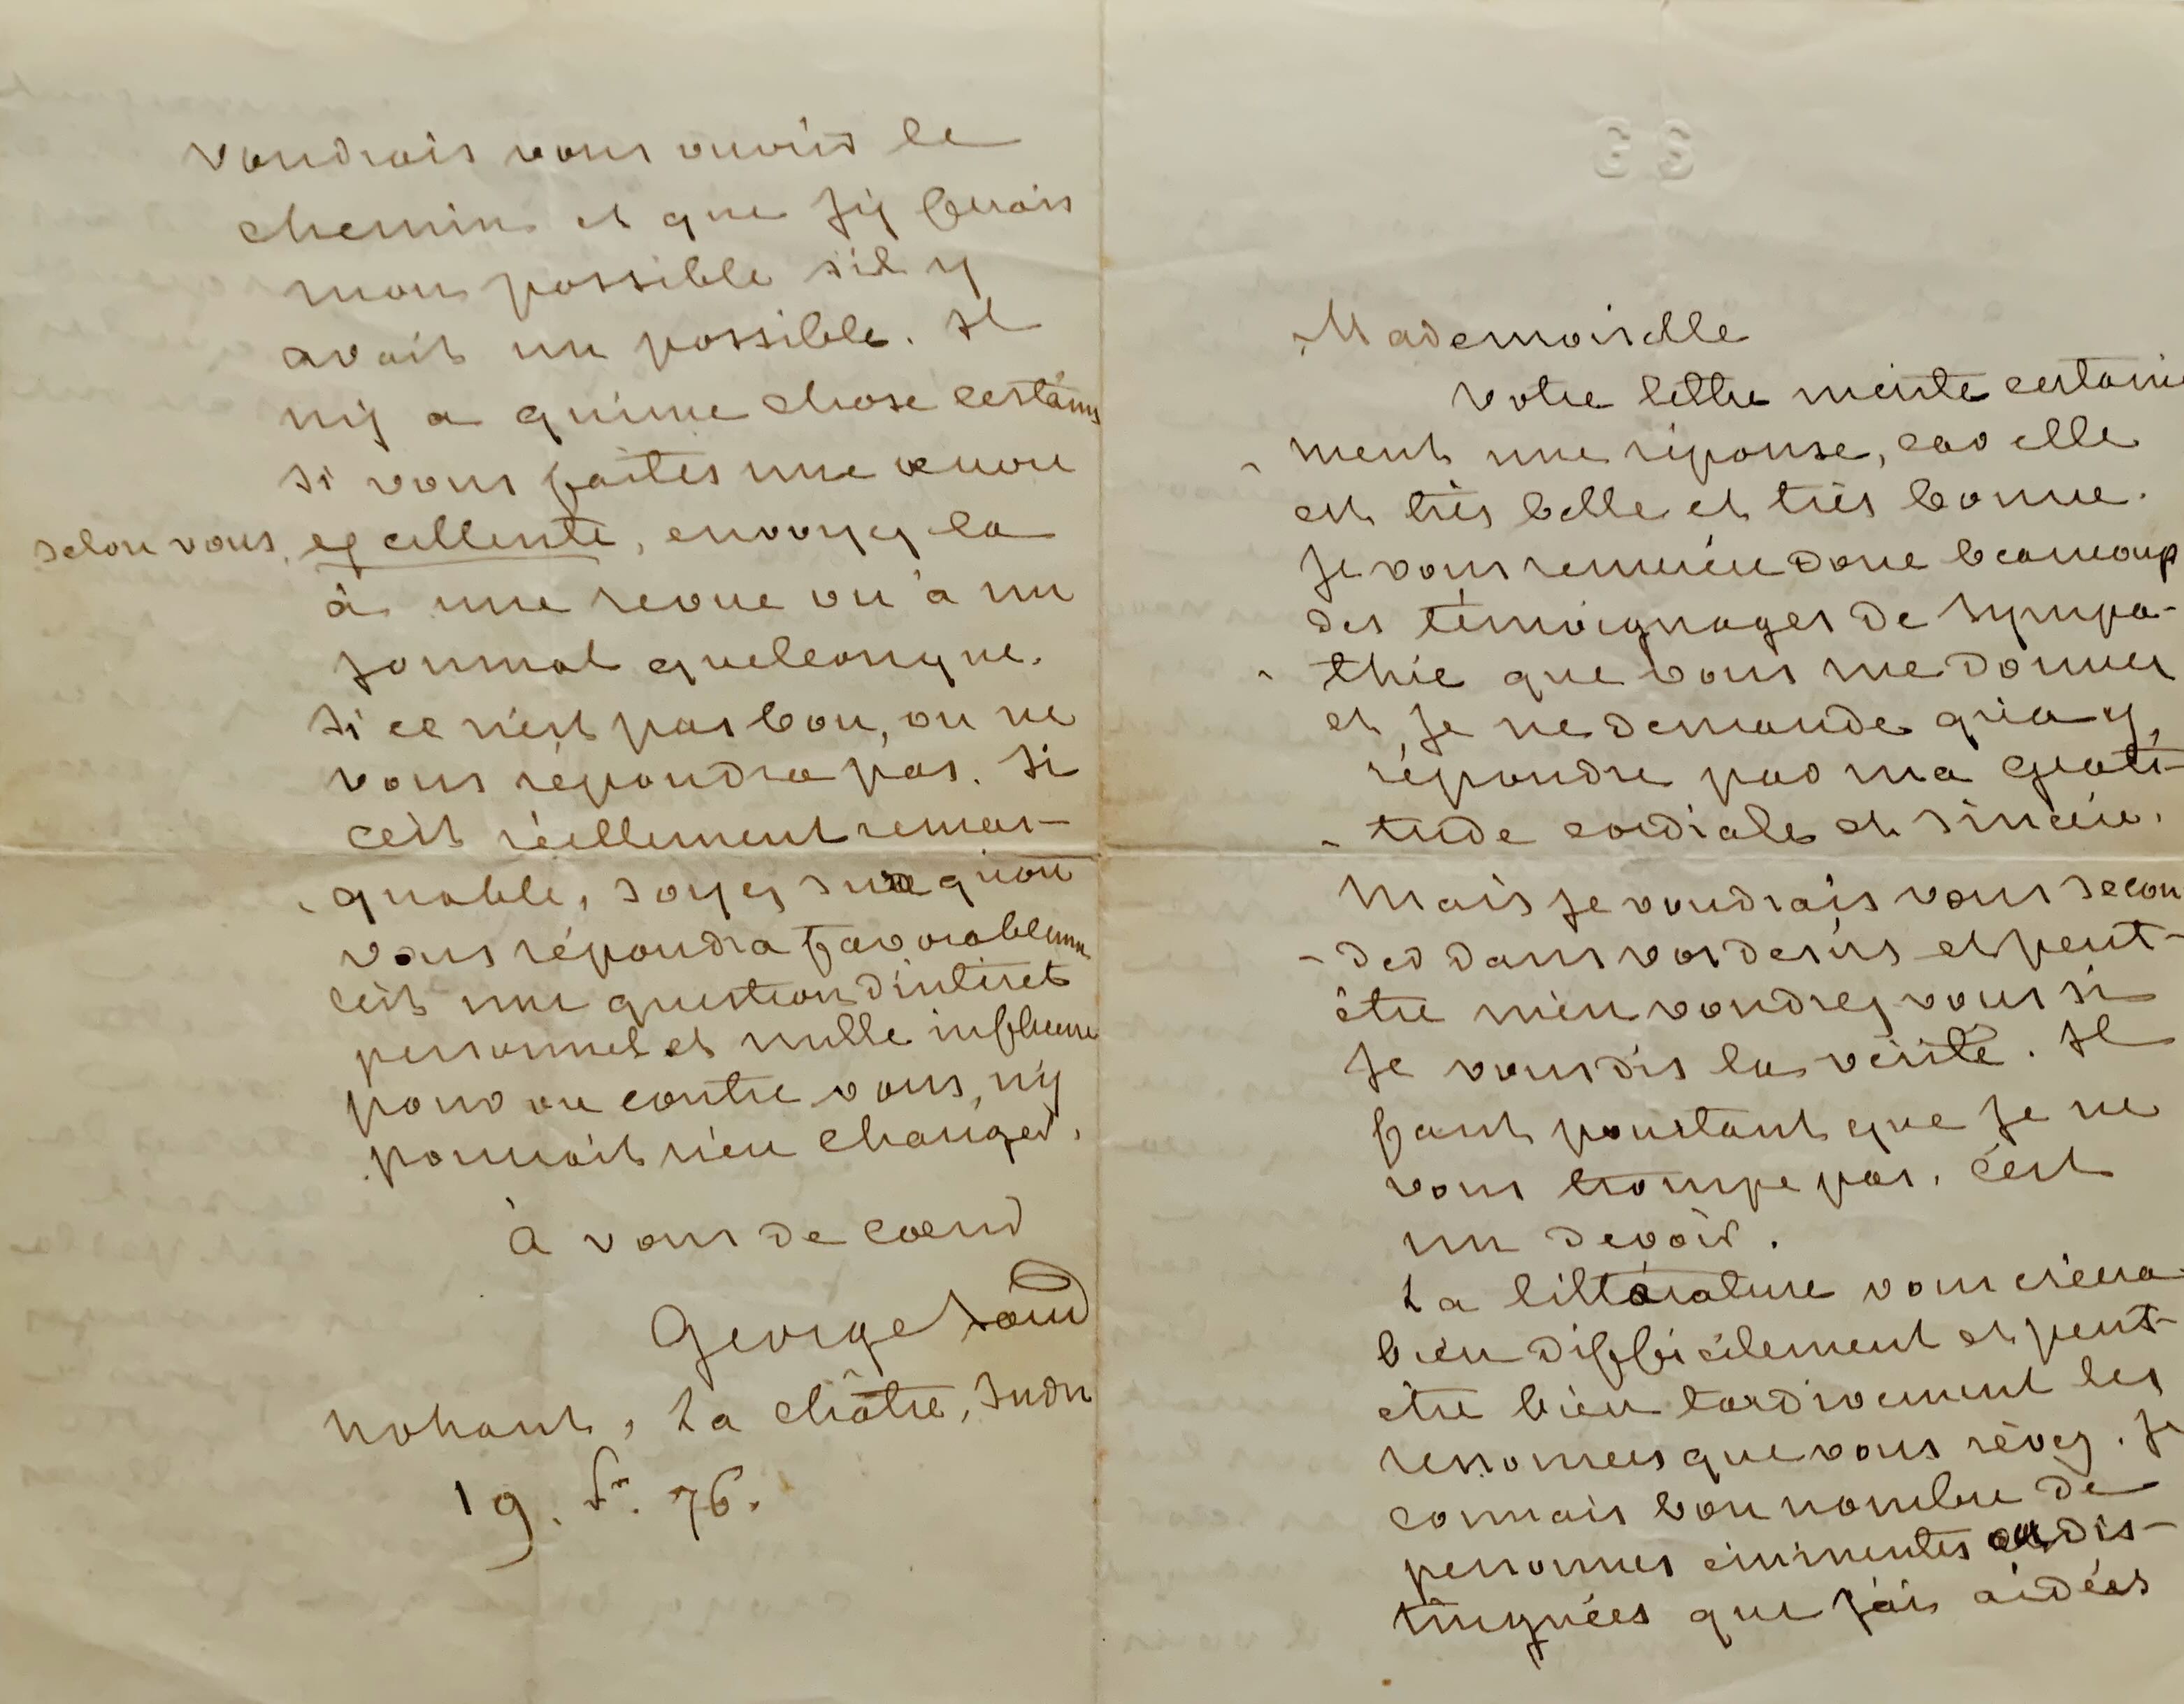 GS
Mademoiselle
votre lettre mérite certaine
- ment une réponse, car elle
est très belle et très bonne.
Je vous remercie donc beaucoup
des témoignages de sympa-
- thie que vous me donnez
et je ne demande qu'à y
répondre par ma grati-
- tude cordiale et sincère.
Mais je voudrais vous secon
- der dans vos desirs et peut-
être m'en voudrez vous si
je vous dis la vérité. Il
faut pourtant que je ne
vous trompe pas, c'est
un devoir.
La littérature vous créera
bien difficilement et peut-
être bien tardivement les
ressources que vous rêvez. Je
connais bon nombre de
personnes éminentes ou dis-
tinguées que j'ai aidées
voudrais vous ouvrir le
chemin et que j'y ferais
mon possible s'il y
avait un possible. Il
n'y a qu'une chose certaine
si vous faites une œuvre
selon vous, excellente, envoyez la
à une revue ou à un
journal quelconque.
Si ce n'est pas bon, on ne
vous répondra pas. Si
c'est réellement remar-
- quable, soyez sure qu'on
vous répondra favorablement
c'est une question d'intérêt
personnel et nulle influence
pour ou contre vous, n'y
pourrait rien changer.
À vous de cœur
George Sand
Nohant, La Châtre, Indre
19. fr. 76.